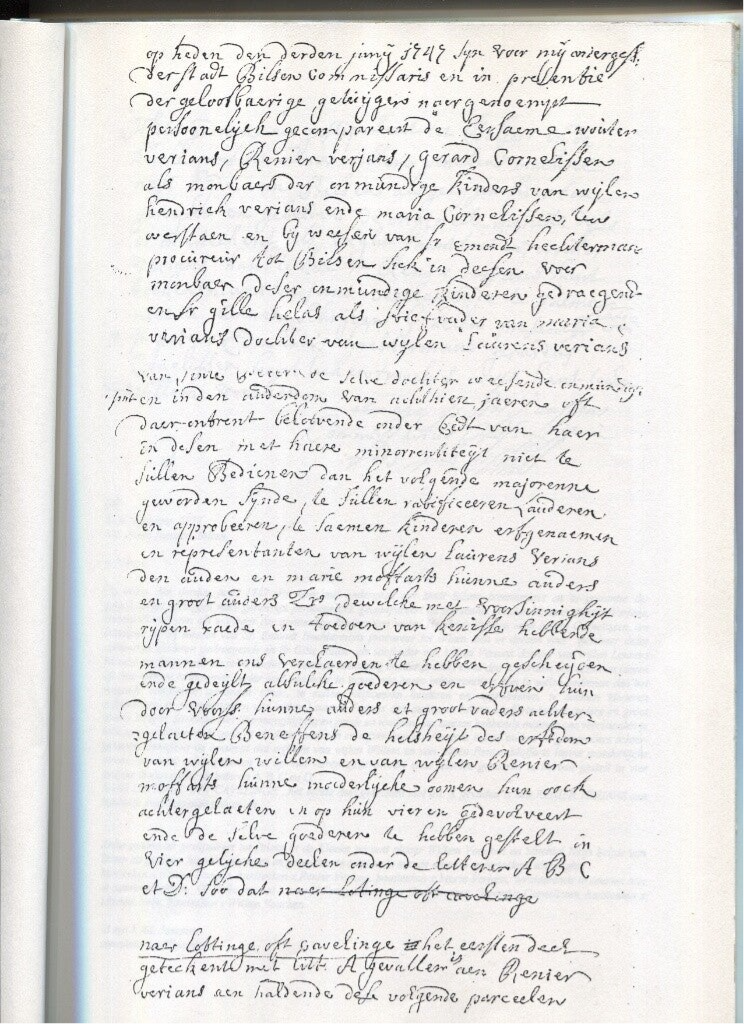 op heden den derden junij 1747 syn voor mij onderges:
der stadt Bilsen Commissaris en in presentie
der geloofbaerige getuijgen naergenoempt
persoonelijck gecompareert de Eersaeme wouter
verians, Renier verjans, gerard Cornelissen
als monbaers der onmundige kinders van wijlen
hendrick verians ende maria Cornelissen, te
verstaen en bij weesen van sr emondt hechterman
procureur tot Bilsen sich in deesen voor
monbaer deser onmundige kinderen gedraegende
en sr gille helas als stiefvader van maria
verians dochter van wijlen Laurens verians
van de selve dochter weesende onmundig
en in den auderdom van achthien jaeren oft
daer ontrent belovende onder Eedt van haer
in desen met haere minorrentiteijt niet te
sullen Bedienen dan het volgende majorenne
geworden synde, te sullen ratificeeren lauderen
en approbeeren, te saemen kinderen erfgenaemen
en representanten van wijlen Laurens Verians
den auden en marie moffarts hunne auders
en groot auders Ers, dewelcke met voorsinnigheijt
rijpen raede en toedoen van kenisse hebbende
mannen ons verclaerden te hebben gescheijden
ende gedeijlt alsulcke goederen en erven hun
door voors. hunne auders et groot vaders achter=
=gelaeten Beneffens de helscheijt des erfdom
van wijlen willem en van wijlen Renier
moffarts hunne moederlijcke oomen hun oock
achtergelaeten en op hun vieren gedevolveert
ende de selve goederen te hebben gestelt in
vier gelijcke deelen onder de letteren A B C
et D: soo dat naer lotinge oft cavelinge
naer lottinge oft cavelinge het eersten deel
geteckent met litt. A gevallen is aen Renier
verians aen haldende dese volgende parceelen